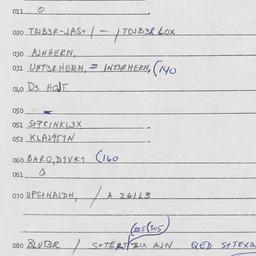 011 0
020 TOWB3R-JAS+ / - / TOWB3R LOX
030 AJNHERN,
031 UNT3RHERN, = INT3RHERN, (140
040 D3 HOJT
050 -
051 S+PRINKL3X
052 KLAJ9T1N
060 BARO,D1VK1 (160
061 0
070 UPS+NAJDN, / A 26163
(225 (305)
080 BLUT3R / S+TERT AJN QED S+TEX